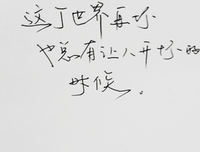 这个世界再坏
也总有让人开怀的
时候。